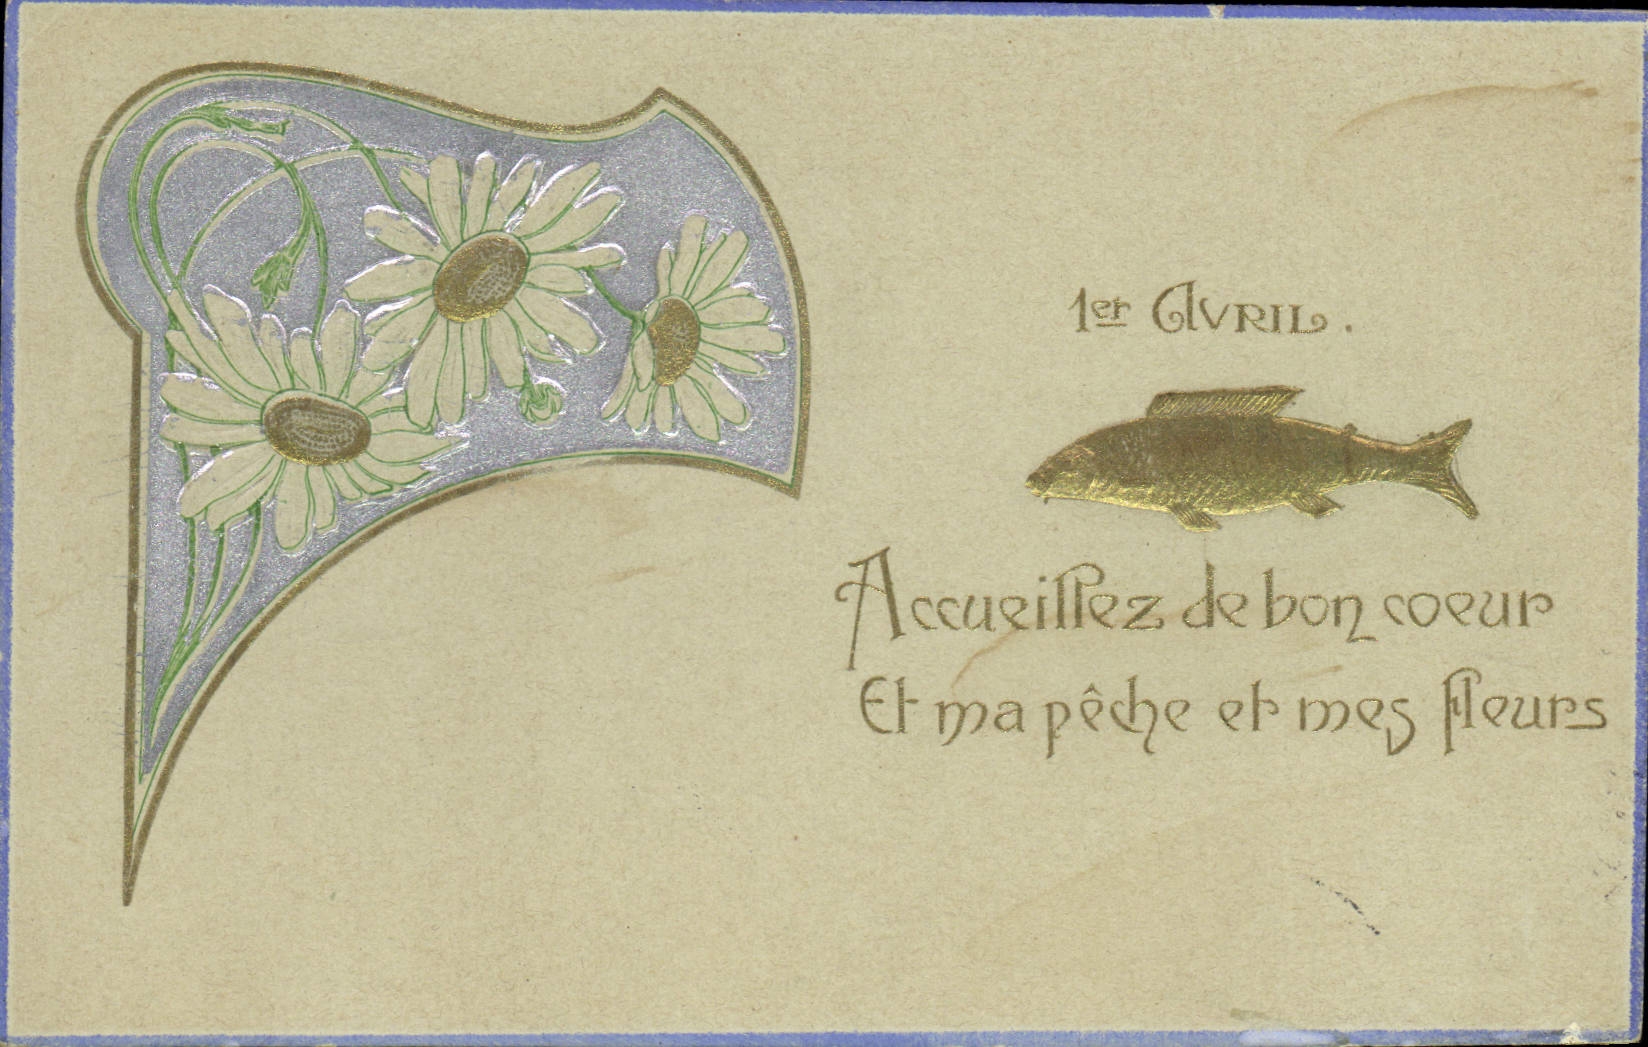 1er AVRIL.
Accueillez de bon coeur
Et ma pêche et mes fleurs